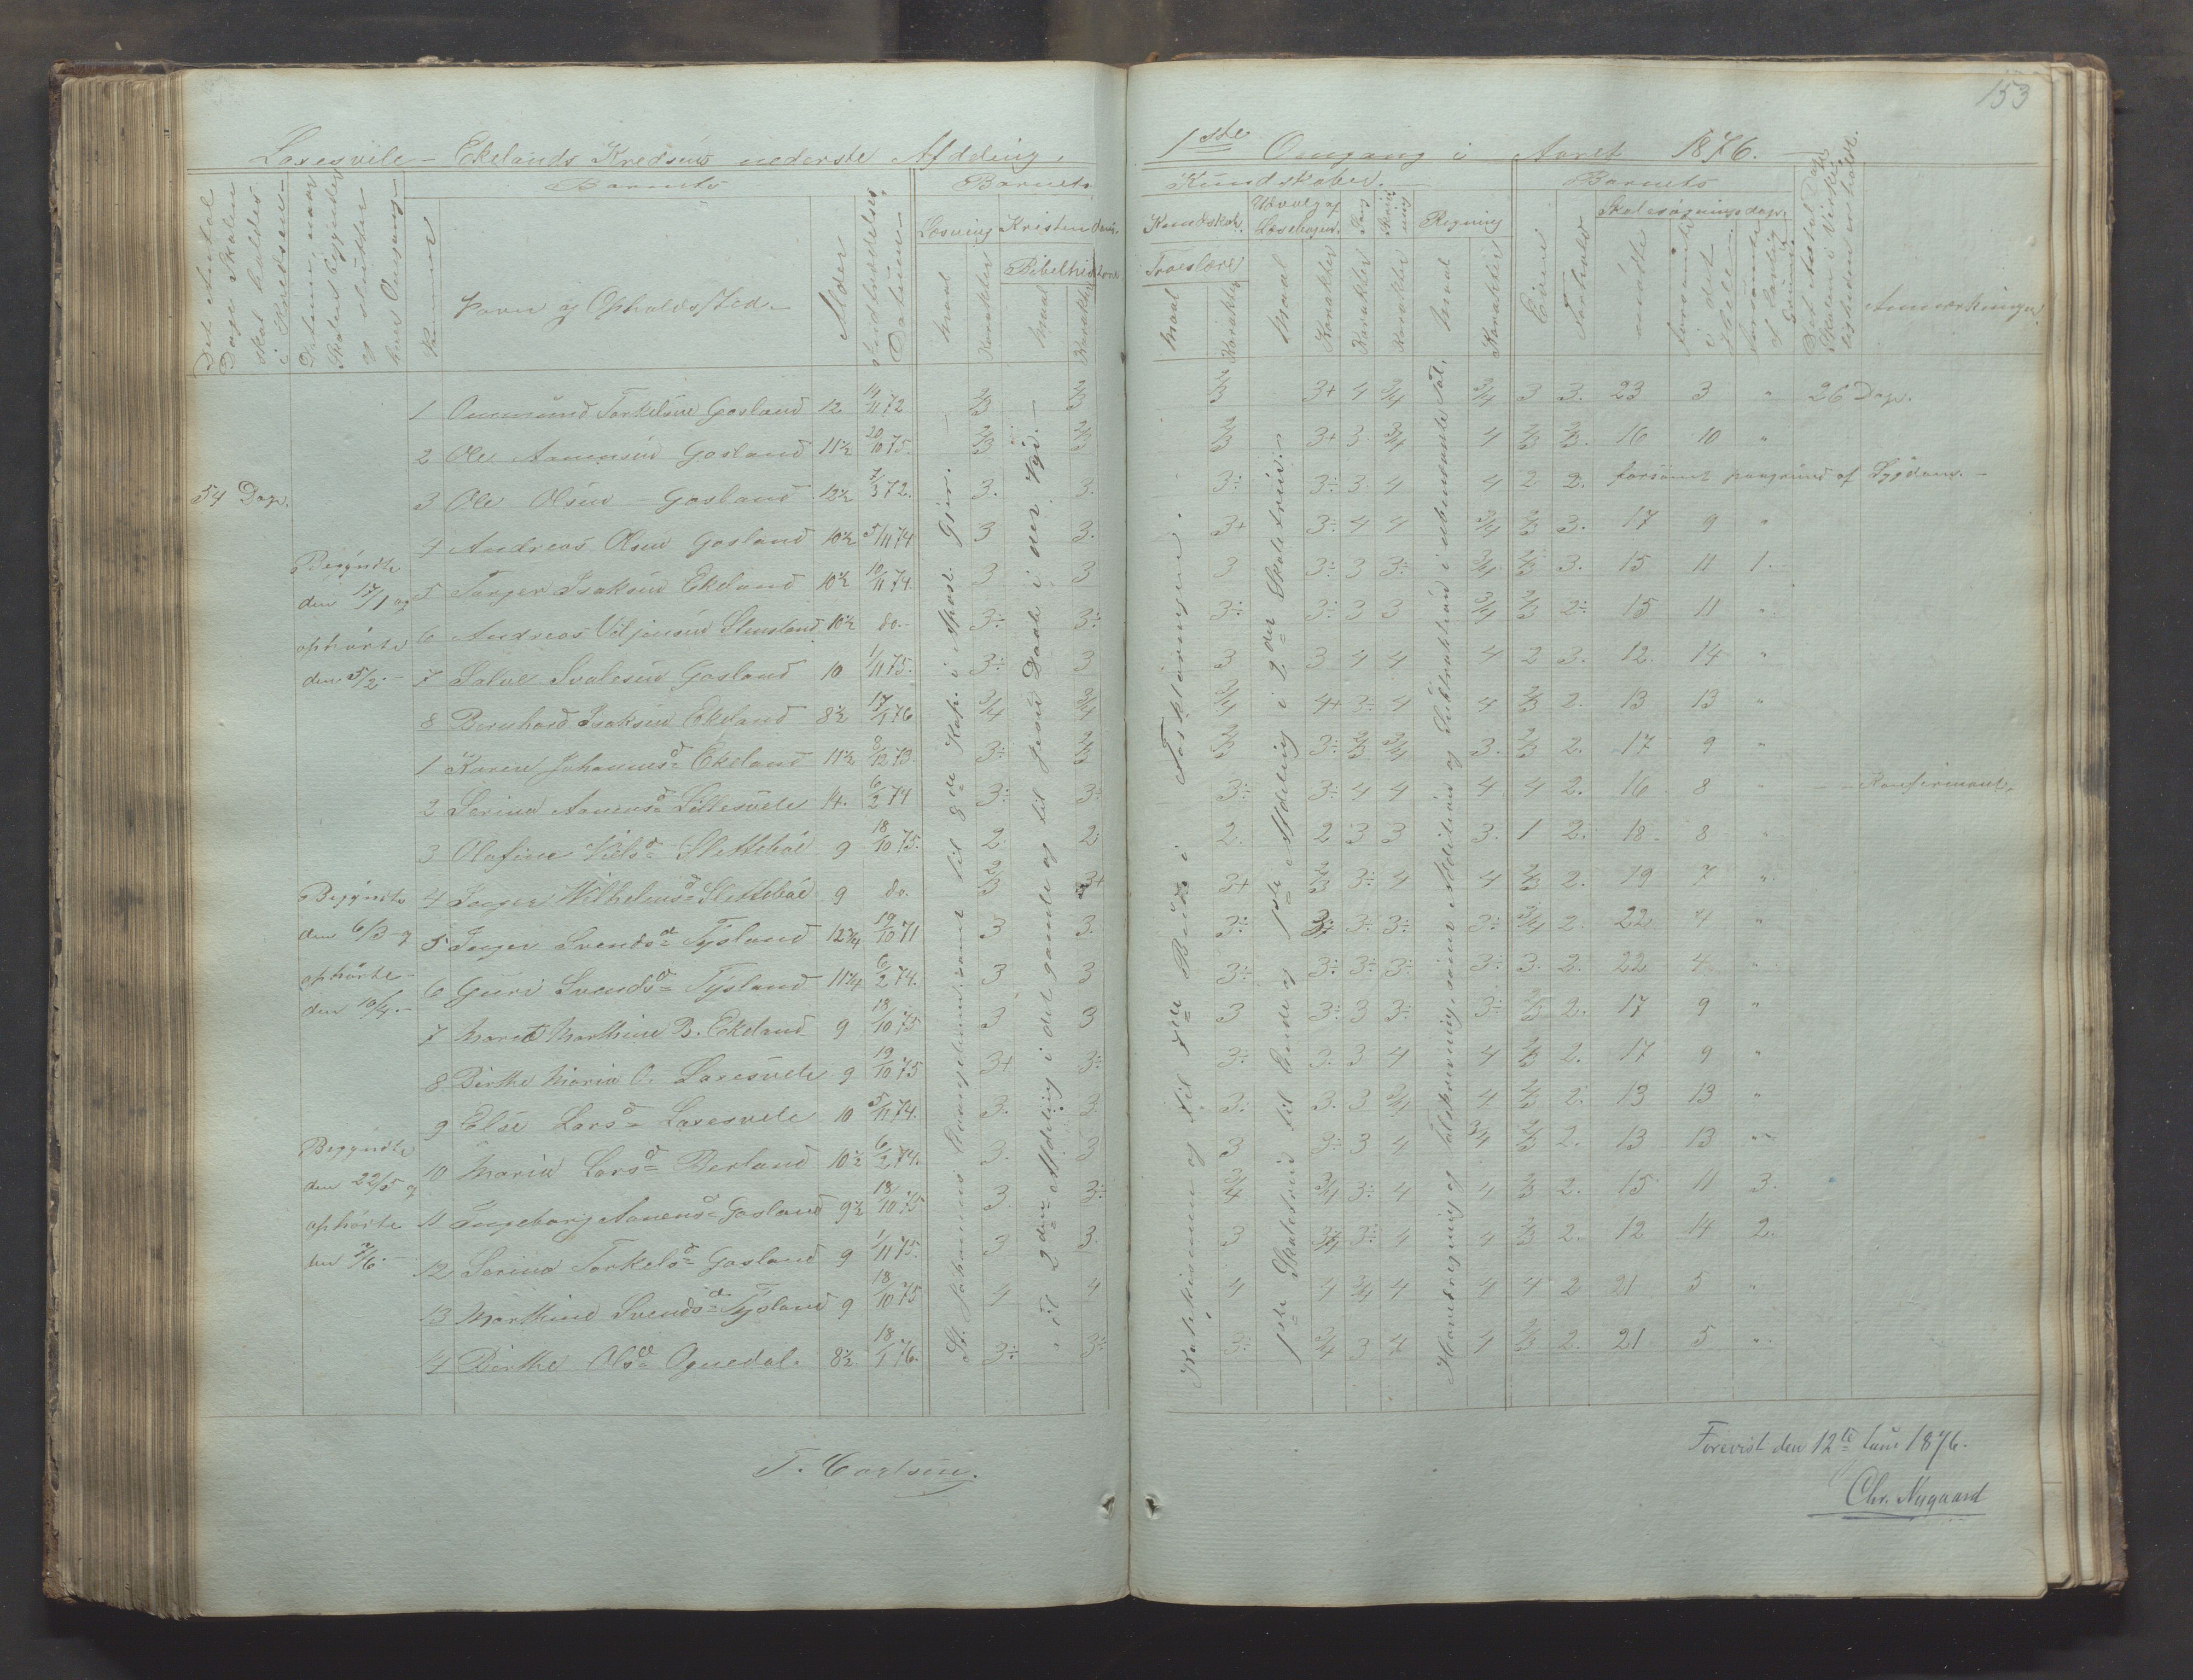 153
Laxesvele - Ekelands Kredsens nederste Afdeling. 1ste Omgang i Aaret 1876.
Det Antal Dage Skolen skal holdes i Kredsen
Datum, naar Skolen begynder og slutter hver Omgang
Nummer
Barnets
Navn og Opholdssted.
Alder
Indtrædelses Datum
Barnets Kundskaber.
Læsning
Maal
Karakter
Kristendoms Kundskab.
Bibelhistorie
Maal
Karakter
Troeslære
Maal
Karakter
Udvalg af Læsebogen.
Maal
Karakter
Sang
Karakter
Skrivning
Karakter
Regning
Maal
Karakter
Barnets
Evne
Forhold
Skolesøgningsdage
mødte
forsømte i det Hele
forsømte af lovlig Grund
Det Antal Dage Skolen i Virkeligheden er holdt.
Anmærkninger.
54 Dage.
Begyndte den 17/1 og ophørte den 5/2.
Begyndte den 6/3 og ophørte den 10/4.
Begyndte den 22/5 og ophørte den 7/6.
St. Johannes Evangelium samt til 8de Kap. i Apost. Gjer.
til 2den Afdeling i det gamle og til Jesu Daab i det nye.
Katekismen og til 4de Bud i Forklaringen.
1ste Skoletrin til Ende og 1ste Afdeling i 2det Skoletrin.
Hovedregning og Talskrivning, samt Addition og Subtraktion i ubenævnte Tal.
1 Ommund Torkelsen Gosland 12 14/11 72 2/3 2/3 2/3 3+ 4 3/4 3/4 3 3. 23 3 " 26 Dage.
2 Ole Aanensen Gosland 11½ 20/10 75. 2/3 2/3 2/3 3+ 3 3/4 4 2/3 2/3. 16 10 "
3 Ole Olsen - Gosland 12½ 7/3 72. 3. 3. 3÷ 3÷ 3. 4 4 2 2. forsømt paagrund af Sygdom.
4 Andreas Olsen Gosland 10½ 5/11 74 3 3. 3+ 3÷ 4 4 3/4 2/3 3. 17 9 "
5 Torger Isaksen Ekeland 10½ 10/11 74. 3 3 3 3÷ 3 3÷ 3/4 2/3 3. 15 11 1.
6 Andreas Viljensen Stensland 10½ do. 3÷ 3÷ 3÷ 3÷ 3 3 3/4 2/3 2÷ 15 11 "
7 Salve Svalesen Gosland 10 1/11 75. 3÷ 3 3 3 4 4 4 2 3. 12. 14 "
8 Bernhard Isaksen Ekeland 8½ 17/1 76 3/4 3/4 3/4 4+ 3÷ 4 4 2/3 2. 13 13 "
1 Karen Johannesd. Ekeland 11½ 8/12 73. 3÷ 2/3 2/3 3÷ 2/3 3/4 3. 2/3 2. 17 9 "
2 Serina Aanensd. Lillesvele 14. 6/2 74 3÷ 3÷ 3÷ 3÷ 4 4 4 4 2. 16 8 " Konfirmant.
3 Olafine Nilsd. Slettebøe 9 18/10 75. 2 2 2. 2 3 3 3. 1 2. 18 8 "
4 Inger Wilhelmsd. Slettebøe 9 do. 2/3 3+ 3+ 2/3 3÷ 4 4 2/3 2. 19 7 "
5 Inger Svendsd. Tysland 12¾ 19/10 71 3 3. 3÷ 3÷ 3÷ 3÷ 3÷ 3/4 2. 22 4 "
6 Guri Svendsd. Tysland 11¼ 6/2 74. 3 3 3÷ 3÷ 3÷ 3÷ 3÷ 3. 2. 22 4 "
7 Marthe Marthine B. Ekeland 9 18/10 75 3 3 3 3÷ 3 3÷ 3÷ 2/3 2. 17 9 "
8. Birthe Maria O. Laxesvele 9 19/10 75 3+ 3÷ 3÷ 3. 3 4 4 2/3 2. 17 9 "
9 Else Larsd. Laxesvele 10 5/11 74. 3. 3. 3. 3. 3 3/4 4 2/3 2. 13 13 "
10 Maria Larsd. Berland 10½ 6/2 74. 3. 3 3 3÷ 3 4 3/4 2/3 2. 13 13 "
11 Ingeborg Aanensd. Gosland 9½ 18/10 75 3. 3÷ 3/4 3/4 3÷ 4 4 2/3 2. 15 11 3.
12 Serina Torkelsd. Gosland 9 1/11 75. 3 3. 3 3/4 3÷ 4 4 2/3 2. 12 14 2.
13 Marthine Svendsd. Tysland 9 18/10 75 4 4 4 4 3/4 4 4 4 2 21 5 "
14 Birthe Olsd. Ognedal. 8½. 18/1 76. 3÷ 3÷ 3÷ 3/4 3 4 4 2/3 2. 21 5 "
T. Carlsen.
Forevist den 12te Juni 1876.
Chr. Nygaard